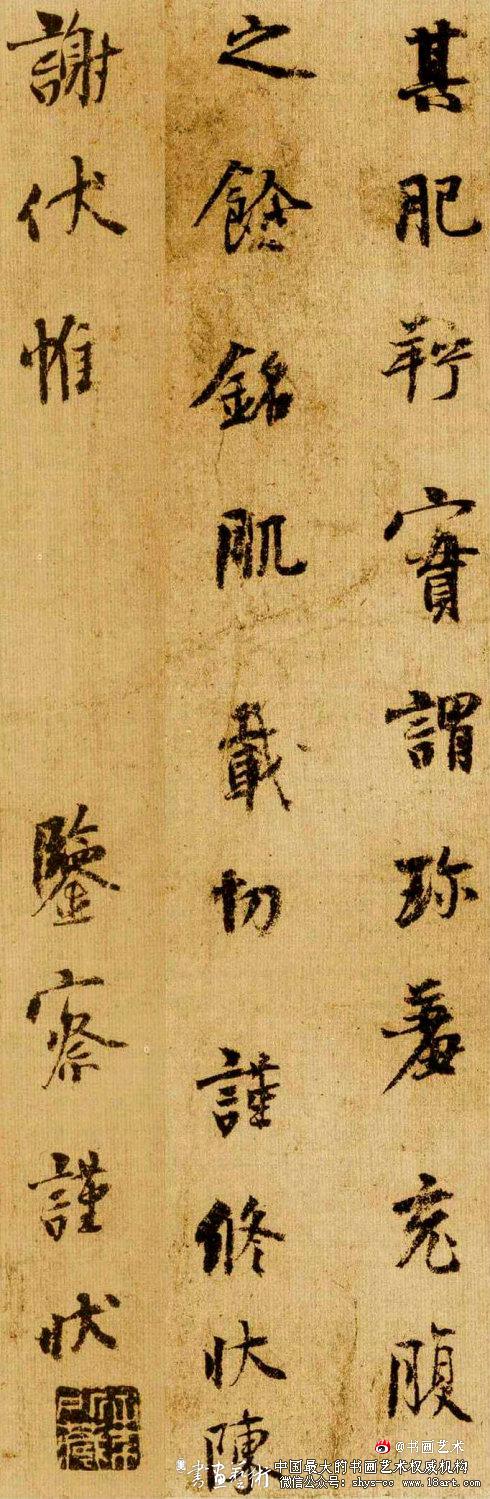 其肥羜實謂珍羞充腹
之餘銘肌載切謹修狀陳
謝伏惟鑒察謹狀
@书画艺术
書畫藝術
中国最大的书画艺术权威机构
微信公众号：shys-cc www.18art.com